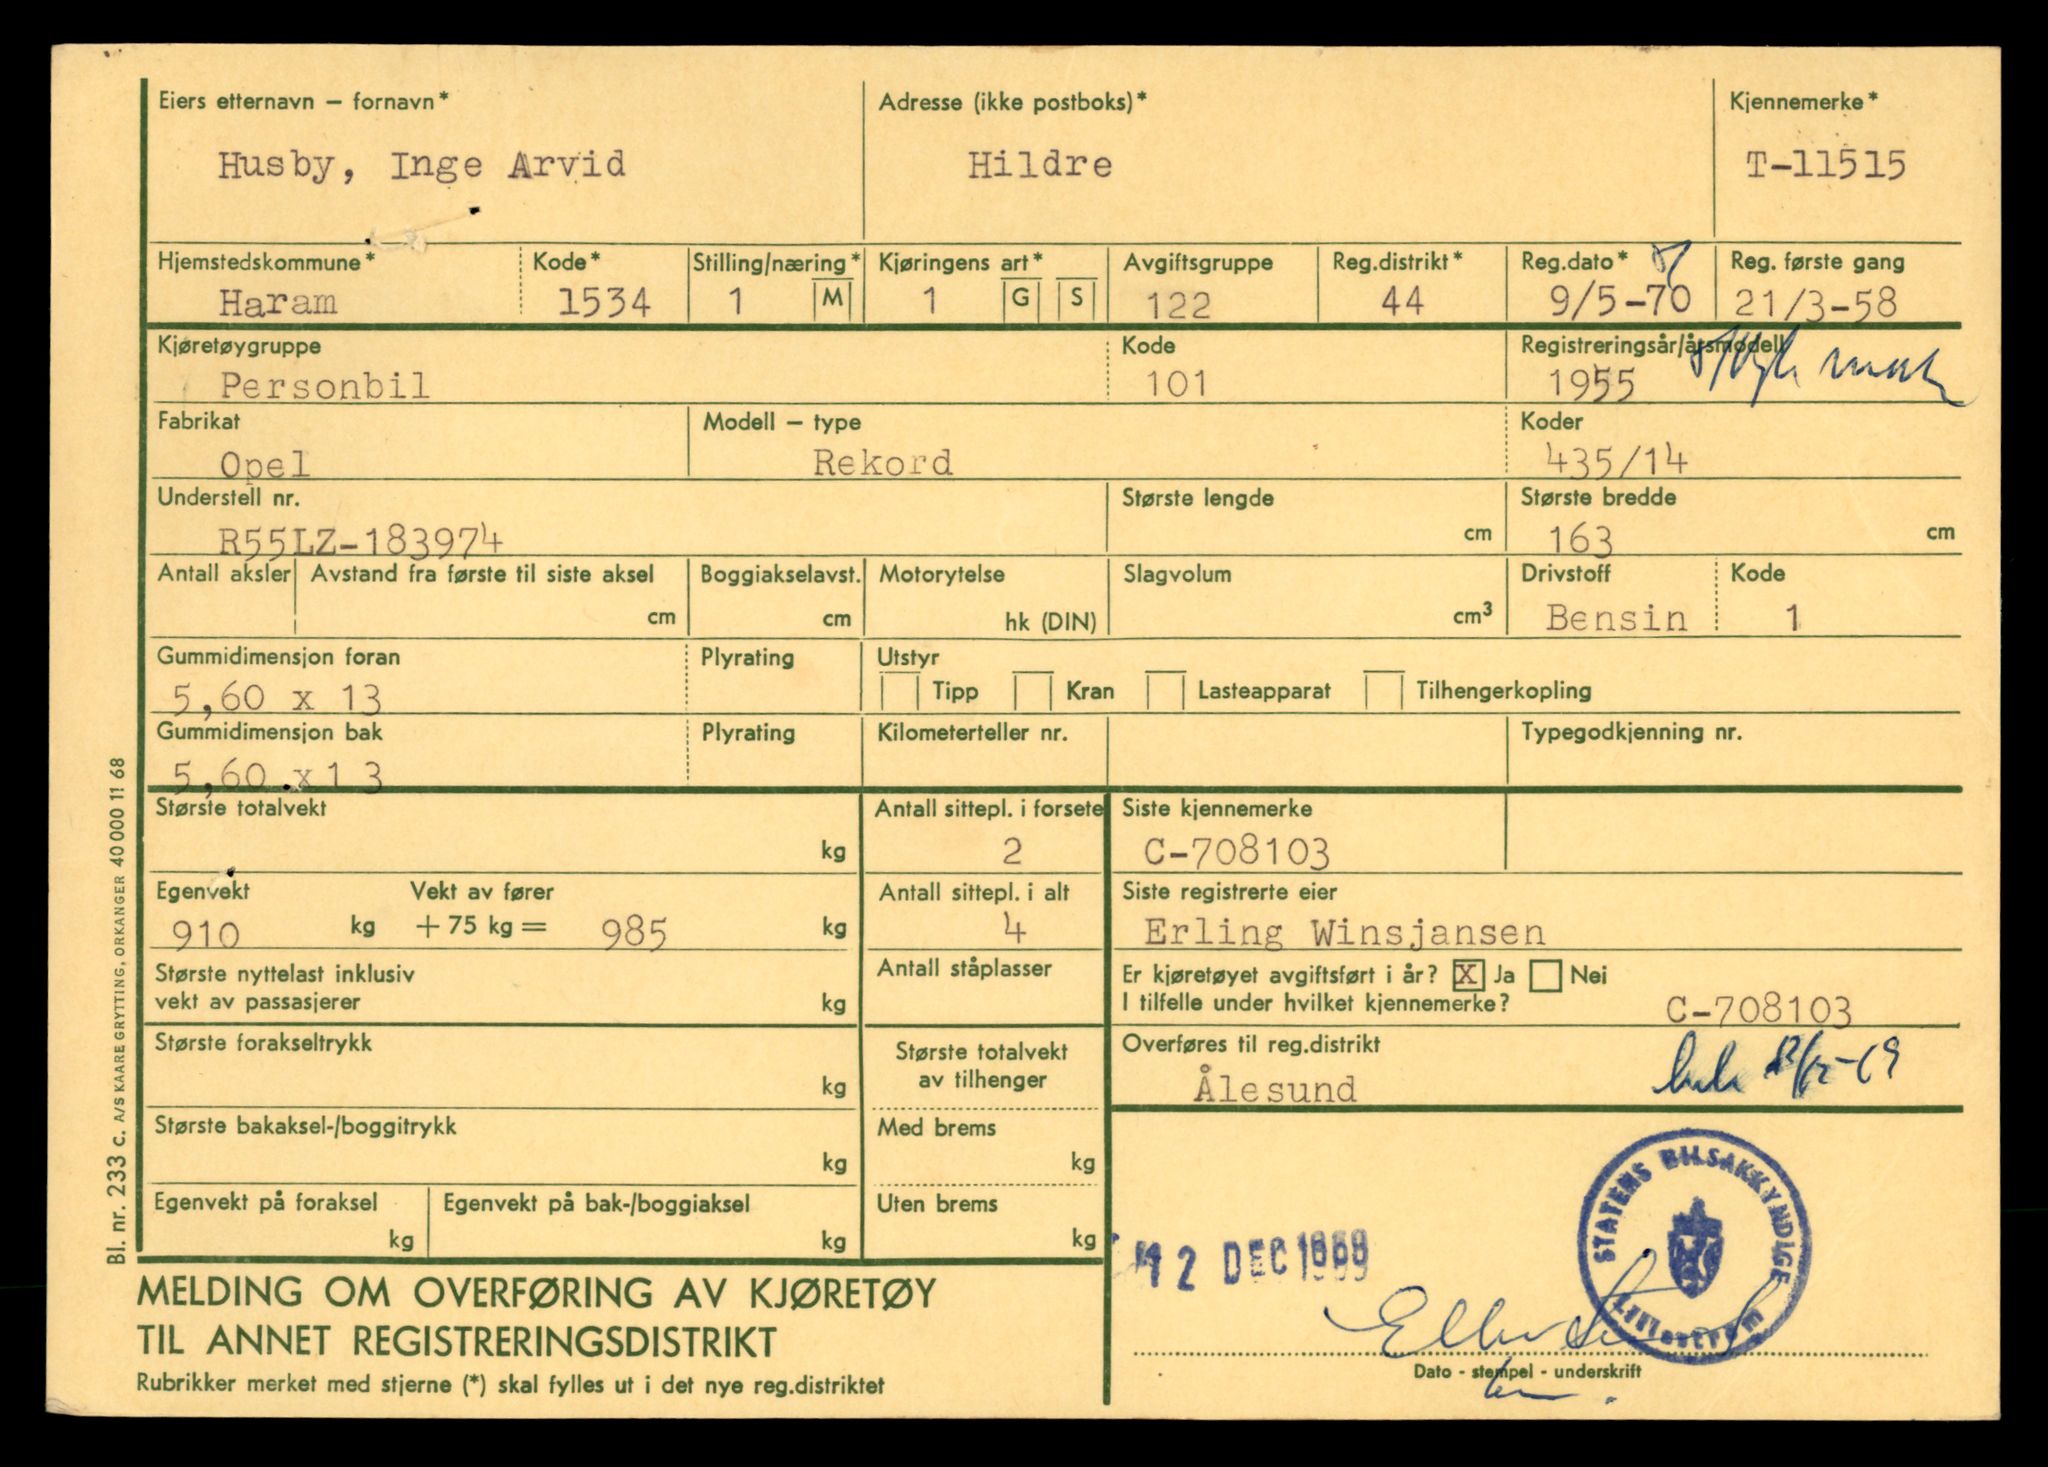 Eiers etternavn – fornavn*
Husby, Inge Arvid
Adresse (ikke postboks)*
Hildre
Kjennemerke*
T-11515
Hjemstedskommune*
Haram
Kode*
1534
Stilling/næring*
1 M
Kjøringens art*
1 G S
Avgiftsgruppe
122
Reg.distrikt*
44
Reg.dato*
9/5-70
Reg. første gang
21/3-58
Kjøretøygruppe
Personbil
Kode
101
Registreringsår/årsmodell
1955
Fabrikat
Opel
Modell – type
Rekord
Koder
435/14
Understell nr.
R55LZ-183974
Største lengde
cm
Største bredde
163 cm
Antall aksler
Avstand fra første til siste aksel
cm
Boggiakselavst.
cm
Motorytelse
hk (DIN)
Slagvolum
cm³
Drivstoff
Bensin
Kode
1
Gummidimensjon foran
5,60 x 13
Plyrating
Utstyr
Tipp Kran Lasteapparat Tilhengerkopling
Gummidimensjon bak
5,60 x13
Plyrating
Kilometerteller nr.
Typegodkjenning nr.
Største totalvekt
kg
Antall sittepl. i forsete
2
Siste kjennemerke
C-708103
Egenvekt
910 kg
Vekt av fører
+ 75 kg = 985 kg
Antall sittepl. i alt
4
Siste registrerte eier
Erling Winsjansen
Største nyttelast inklusiv
vekt av passasjerer kg
Antall ståplasser
Er kjøretøyet avgiftsført i år? X Ja Nei
I tilfelle under hvilket kjennemerke? C-708103
Største forakseltrykk
kg
Største totalvekt
av tilhenger
Overføres til reg.distrikt
Ålesund
Største bakaksel-/boggitrykk
kg
Med brems
kg
Egenvekt på foraksel
kg
Egenvekt på bak-/boggiaksel
kg
Uten brems
kg
12 DEC 1969
STATENS BILSAKKYNDIGE
Lillestrøm
Dato - stempel - underskrift
MELDING OM OVERFØRING AV KJØRETØY
TIL ANNET REGISTRERINGSDISTRIKT
Rubrikker merket med stjerne (*) skal fylles ut i det nye reg.distriktet
Bl. nr. 233 C. A/S KAARE GRYTTING, ORKANGER 40 000 11 68